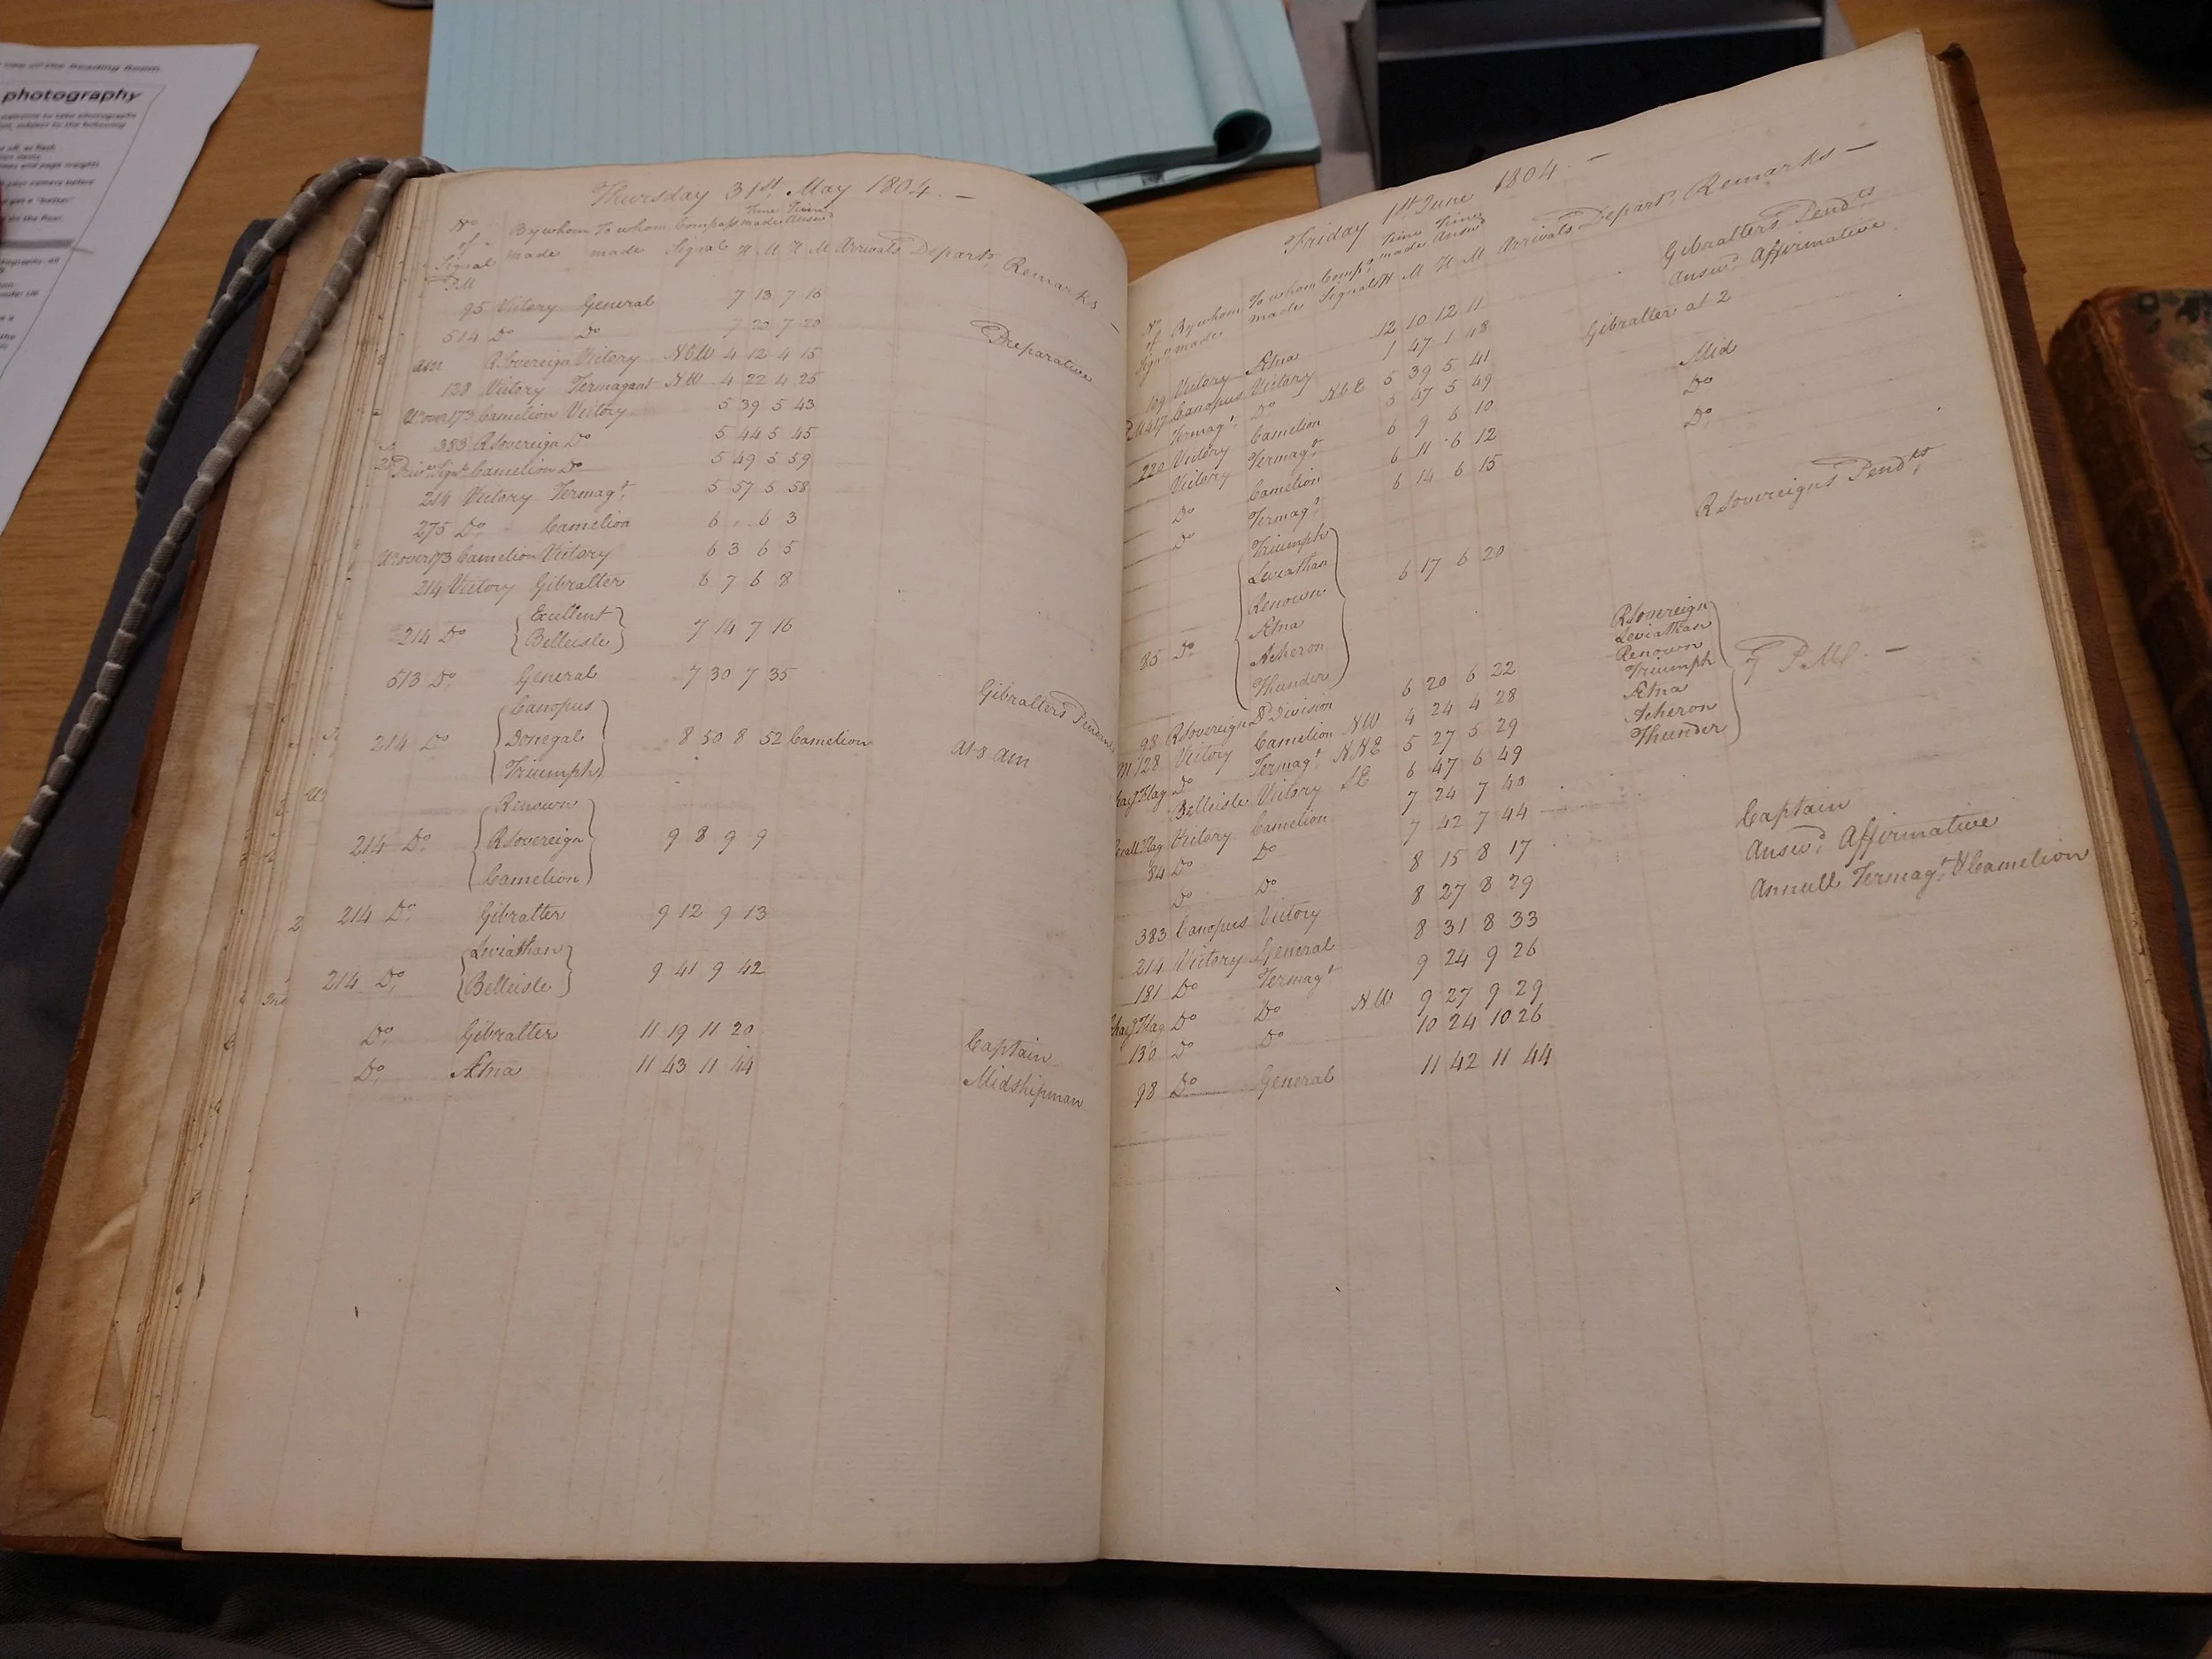 use of the Reading Room
photography
welcome to take photographs
Thursday 31st May 1804. —
No of Signal
By whom made
To whom made
Compass Signal
Time made H M
Time Answd H M
Arrivals
Depart.
Remarks —
PM
95 Victory General 7 13 7 16
514 Do Do 7 20 7 20 Preparative
am R Sovereign Victory NEW 4 12 4 15
128 Victory Termagant NW 4 22 4 25
U over 173 Camelion Victory 5 39 5 43
383 R Sovereign Do 5 44 5 45
Camelion Do 5 49 5 59
214 Victory Termagt. 5 57 5 58
275 Do Camelion 6 .. 6 3
U over 173 Camelion Victory 6 3 6 5
214 Victory Gibralter 6 7 6 8
Excellent
214 Do 7 14 7 16
Belleisle
513 Do General 7 30 7 35 Gibralters
Canopus
214 Do Donegal 8 50 8 52 Camelion at 8 am
Triumph
Renown
214 Do R Sovereign 9 8 9 9
Camelion
214 Do Gibralter 9 12 9 13
Leviathan
214 Do 9 41 9 42
Belleisle
Do Gibralter 11 19 11 20 Captain
Do Ætna 11 43 11 44 Midshipman
Friday 1st June 1804. —
No of Signl
By whom made
To whom made
Comps. Signal
Time made H M
Time Answd H M
Arrivals
Depart.
Remarks —
109 Victory Ætna 12 10 12 11 Gibralters Pendts
Canopus Victory 1 47 1 48 Answd. Affirmative
Termagt. Do NbE 5 39 5 41 Gibralter at 2
220 Victory Camelion 5 47 5 49
Victory Termagt. 6 9 6 10 Mid
Do Camelion 6 11 6 12 Do
Do Termagt. 6 14 6 15 Do
Triumph R Sovereigns Pendts.
Leviathan
Renown 6 17 6 20
Ætna
85 Do Acheron
Thunder
98 R Sovereign Division 6 20 6 22
128 Victory Camelion NW 4 24 4 28
Flag Do Termagt. NNE 5 27 5 29
Belleisle Victory SE 6 47 6 49
R Sovereign
Leviathan
Renown
Triumph 7 PM. —
Ætna
Acheron
Thunder
Flag Victory Camelion 7 24 7 40
84 Do Do 7 42 7 44
Do Do 8 15 8 17 Captain
383 Canopus Victory 8 27 8 29 Answd. Affirmative
214 Victory General 8 31 8 33 Annull Termagt. & Camelion
181 Do Termagt 9 24 9 26
Flag Do Do NW 9 27 9 29
130 Do Do 10 24 10 26
98 Do General 11 42 11 44